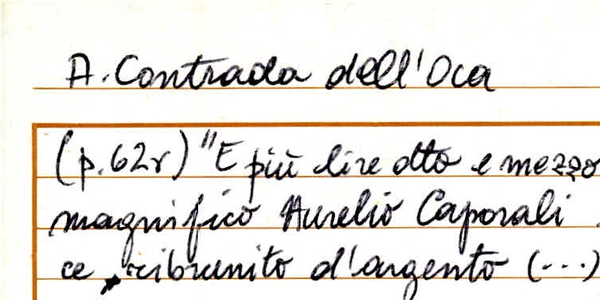 A. Contrada dell'Oca
(p. 62r) "E più lire otto e mezzo
magnifico Aurelio Caporali
ce ribrunito d'argento (...)